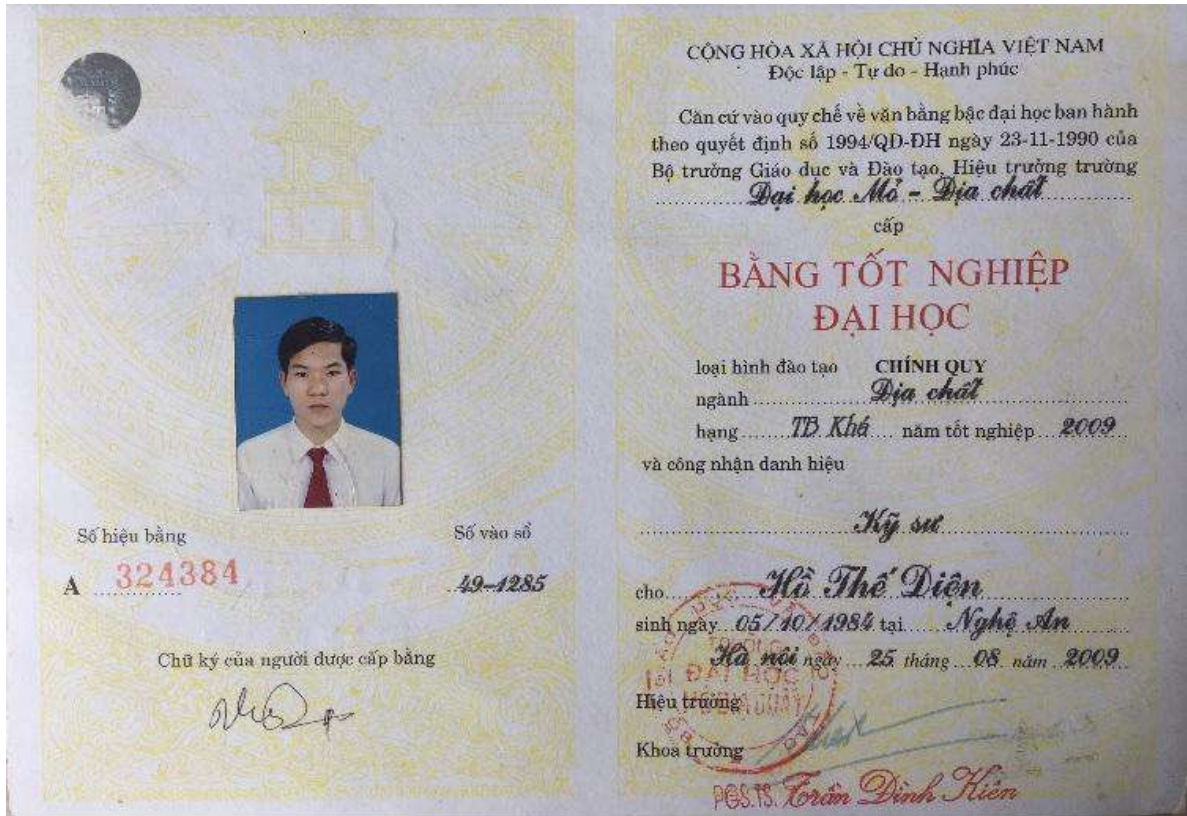 Số hiệu bằng
Số vào sổ
A 324384
49-1285
Chữ ký của người được cấp bằng
CỘNG HÒA XÃ HỘI CHỦ NGHĨA VIỆT NAM
Độc lập - Tự do - Hạnh phúc
Căn cứ vào quy chế về văn bằng bậc đại học ban hành
theo quyết định số 1994/QD-ĐH ngày 23-11-1990 của
Bộ trưởng Giáo dục và Đào tạo, Hiệu trưởng trường
Đại học Mỏ - Địa chất
cấp
BẰNG TỐT NGHIỆP
ĐẠI HỌC
loại hình đào tạo CHÍNH QUY
ngành Địa chất
hạng TB Khá năm tốt nghiệp 2009
và công nhận danh hiệu
Kỹ sư
cho Hồ Thế Diện
sinh ngày 05/10/1984 tại Nghệ An
Hà nội ngày 25 tháng 08 năm 2009
TRƯỜNG
ĐẠI HỌC
MỎ ĐỊA CHẤT
Hiệu trưởng
Khoa trưởng
PGS.TS. Trần Đình Kiên